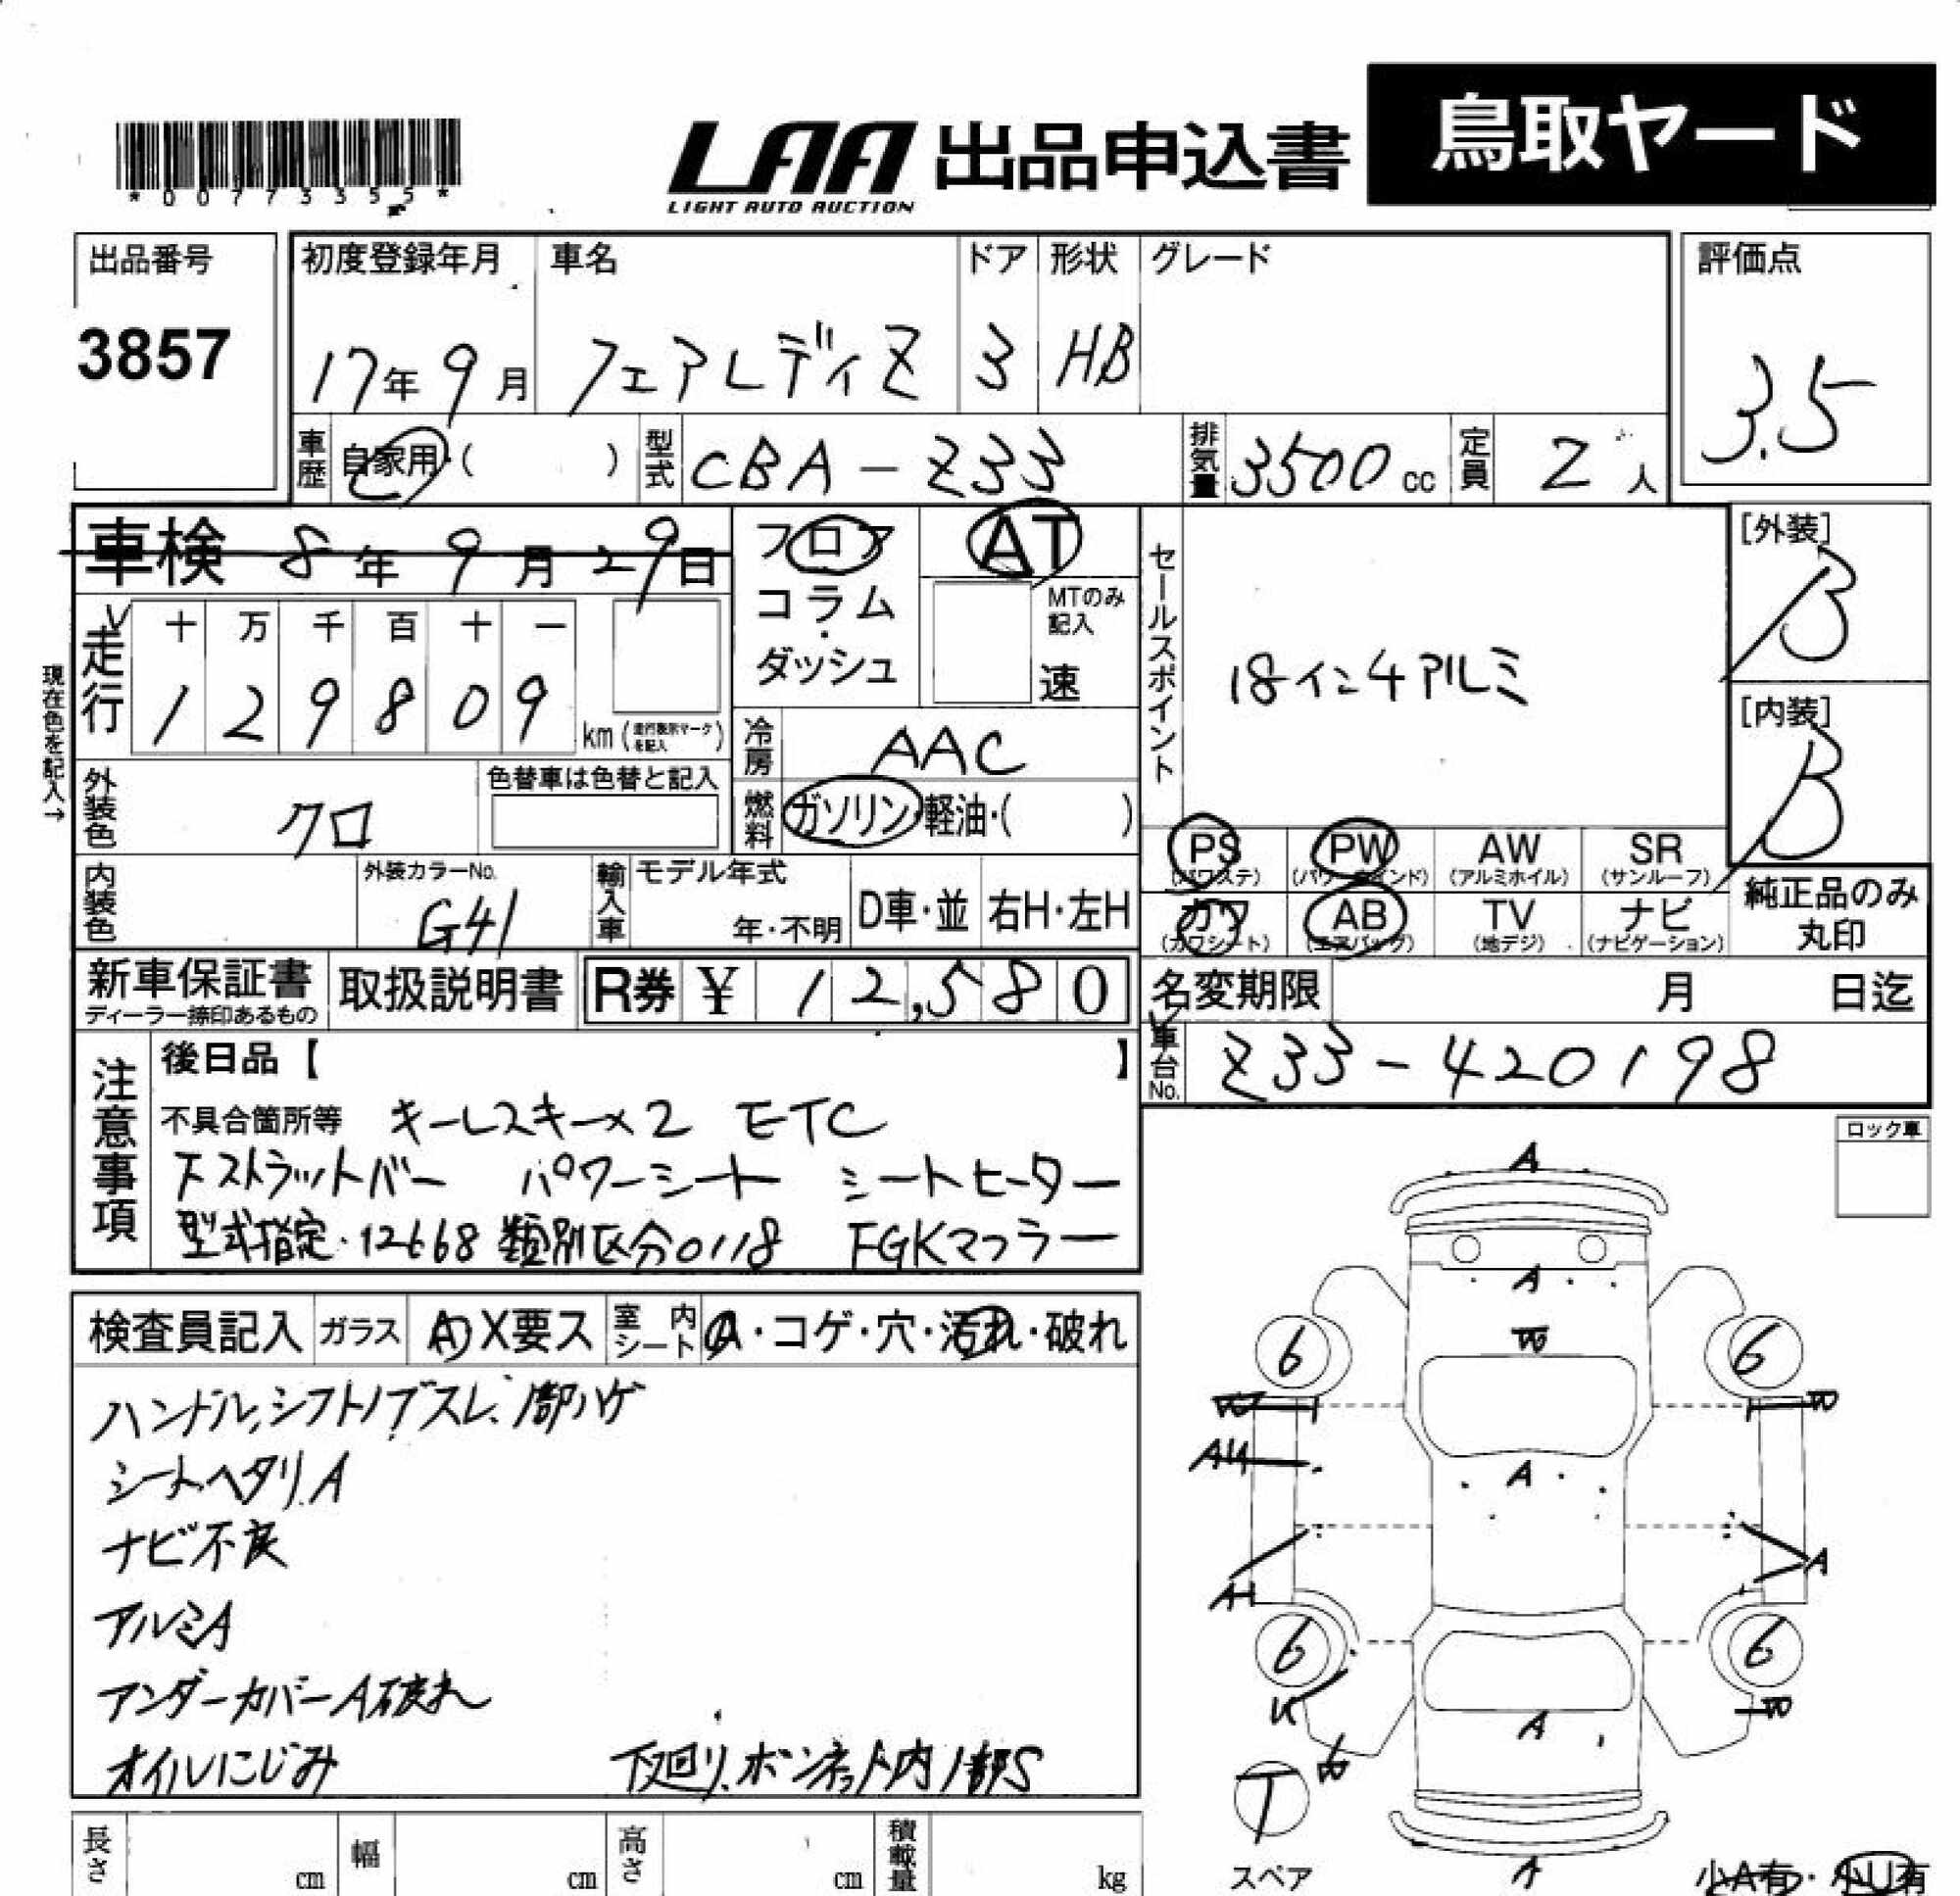 鳥取ヤード
*00773355*
LAA 出品申込書
LIGHT AUTO AUCTION
出品番号
3857
初度登録年月 車名 ドア 形状 グレード
17年9月 フェアレディZ 3 HB
評価点
3.5
車歴 自家用・( ) 型式 CBA-Z33 排気量 3500cc 定員 2人
車検 8年9月29日
フロア
コラム
ダッシュ
AT
MTのみ記入
速
走行
十 万 千 百 十 一
1 2 9 8 0 9
km(走行表示マークを記入)
現在色を記入→
冷房 AAC
燃料 ガソリン・軽油・( )
外装色 クロ
色替車は色替と記入
内装色
外装カラーNo.
G41
輸入車 モデル年式
年・不明
D車・並 右H・左H
セールスポイント
18インチアルミ
[外装]
B
[内装]
B
PS (パワステ) PW (パワーウインド) AW (アルミホイル) SR (サンルーフ)
カワ (カワシート) AB (エアバッグ) TV (地デジ) ナビ (ナビゲーション)
純正品のみ丸印
新車保証書
ディーラー捺印あるもの
取扱説明書
R券 ¥ 12,580
名変期限 月 日迄
車台No. Z33-420198
注意事項
後日品【 】
不具合箇所等 キーレスキー×2 ETC
F ストラットバー パワーシート シートヒーター
型式指定・12668 類別区分0118 FGKマフラー
ロック車
検査員記入 ガラス A X要ス 室内シート A・コゲ・穴・汚れ・破れ
ハンドル,シフトノブスレ、1部ハゲ
シートヘタリ.A
ナビ不良
アルミA
アンダーカバーA破れ
オイルにじみ
下廻り、ボンネット内1部S
A
A
W
6
6
W
W
AU
A
A
6
6
W
A
T
スペア
A
小A有・小U有
長さ cm 幅 cm 高さ cm 積載量 kg